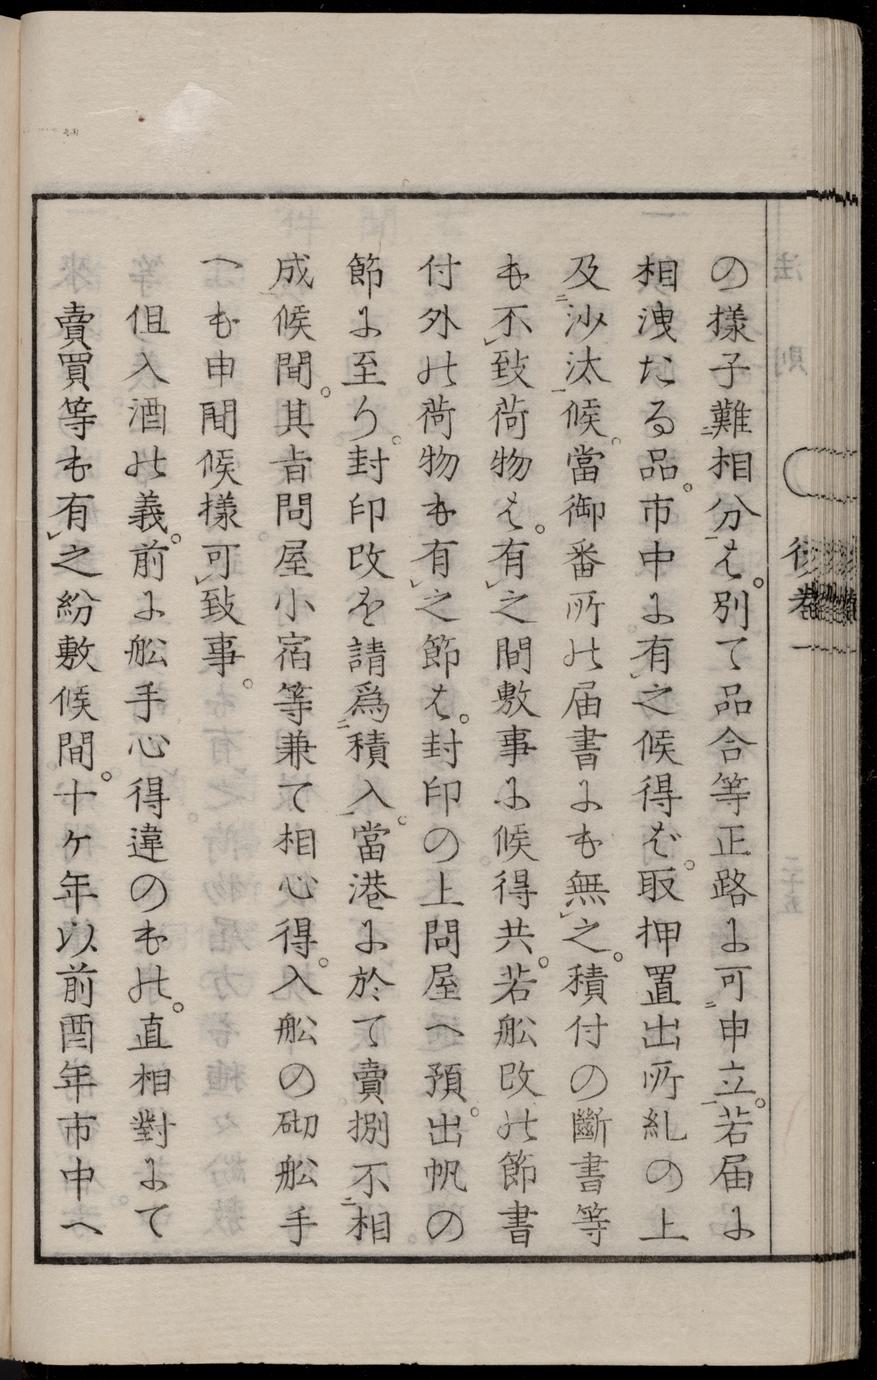 の様子難相分ハ。別て品合等正路に可申立。若届に
相洩たる品。市中に有之候得ば。取押置出所糺の上
及沙汰候。當御番所の届書にも無之。積付の斷書等
も不致荷物ハ。有之間敷事に候得共。若舩改の節書
付外の荷物も有之節ハ。封印の上問屋へ預。出帆の
節に至り。封印改を請爲積入。當港に於て賣捌不相
成候間。其旨問屋小宿等兼て相心得。入舩の砌舩手
へも申聞候様可致事。
但入酒の義。前に舩手心得違のもの。直相對にて
賣買等も有之紛敷候間。十ケ年以前酉年市中へ